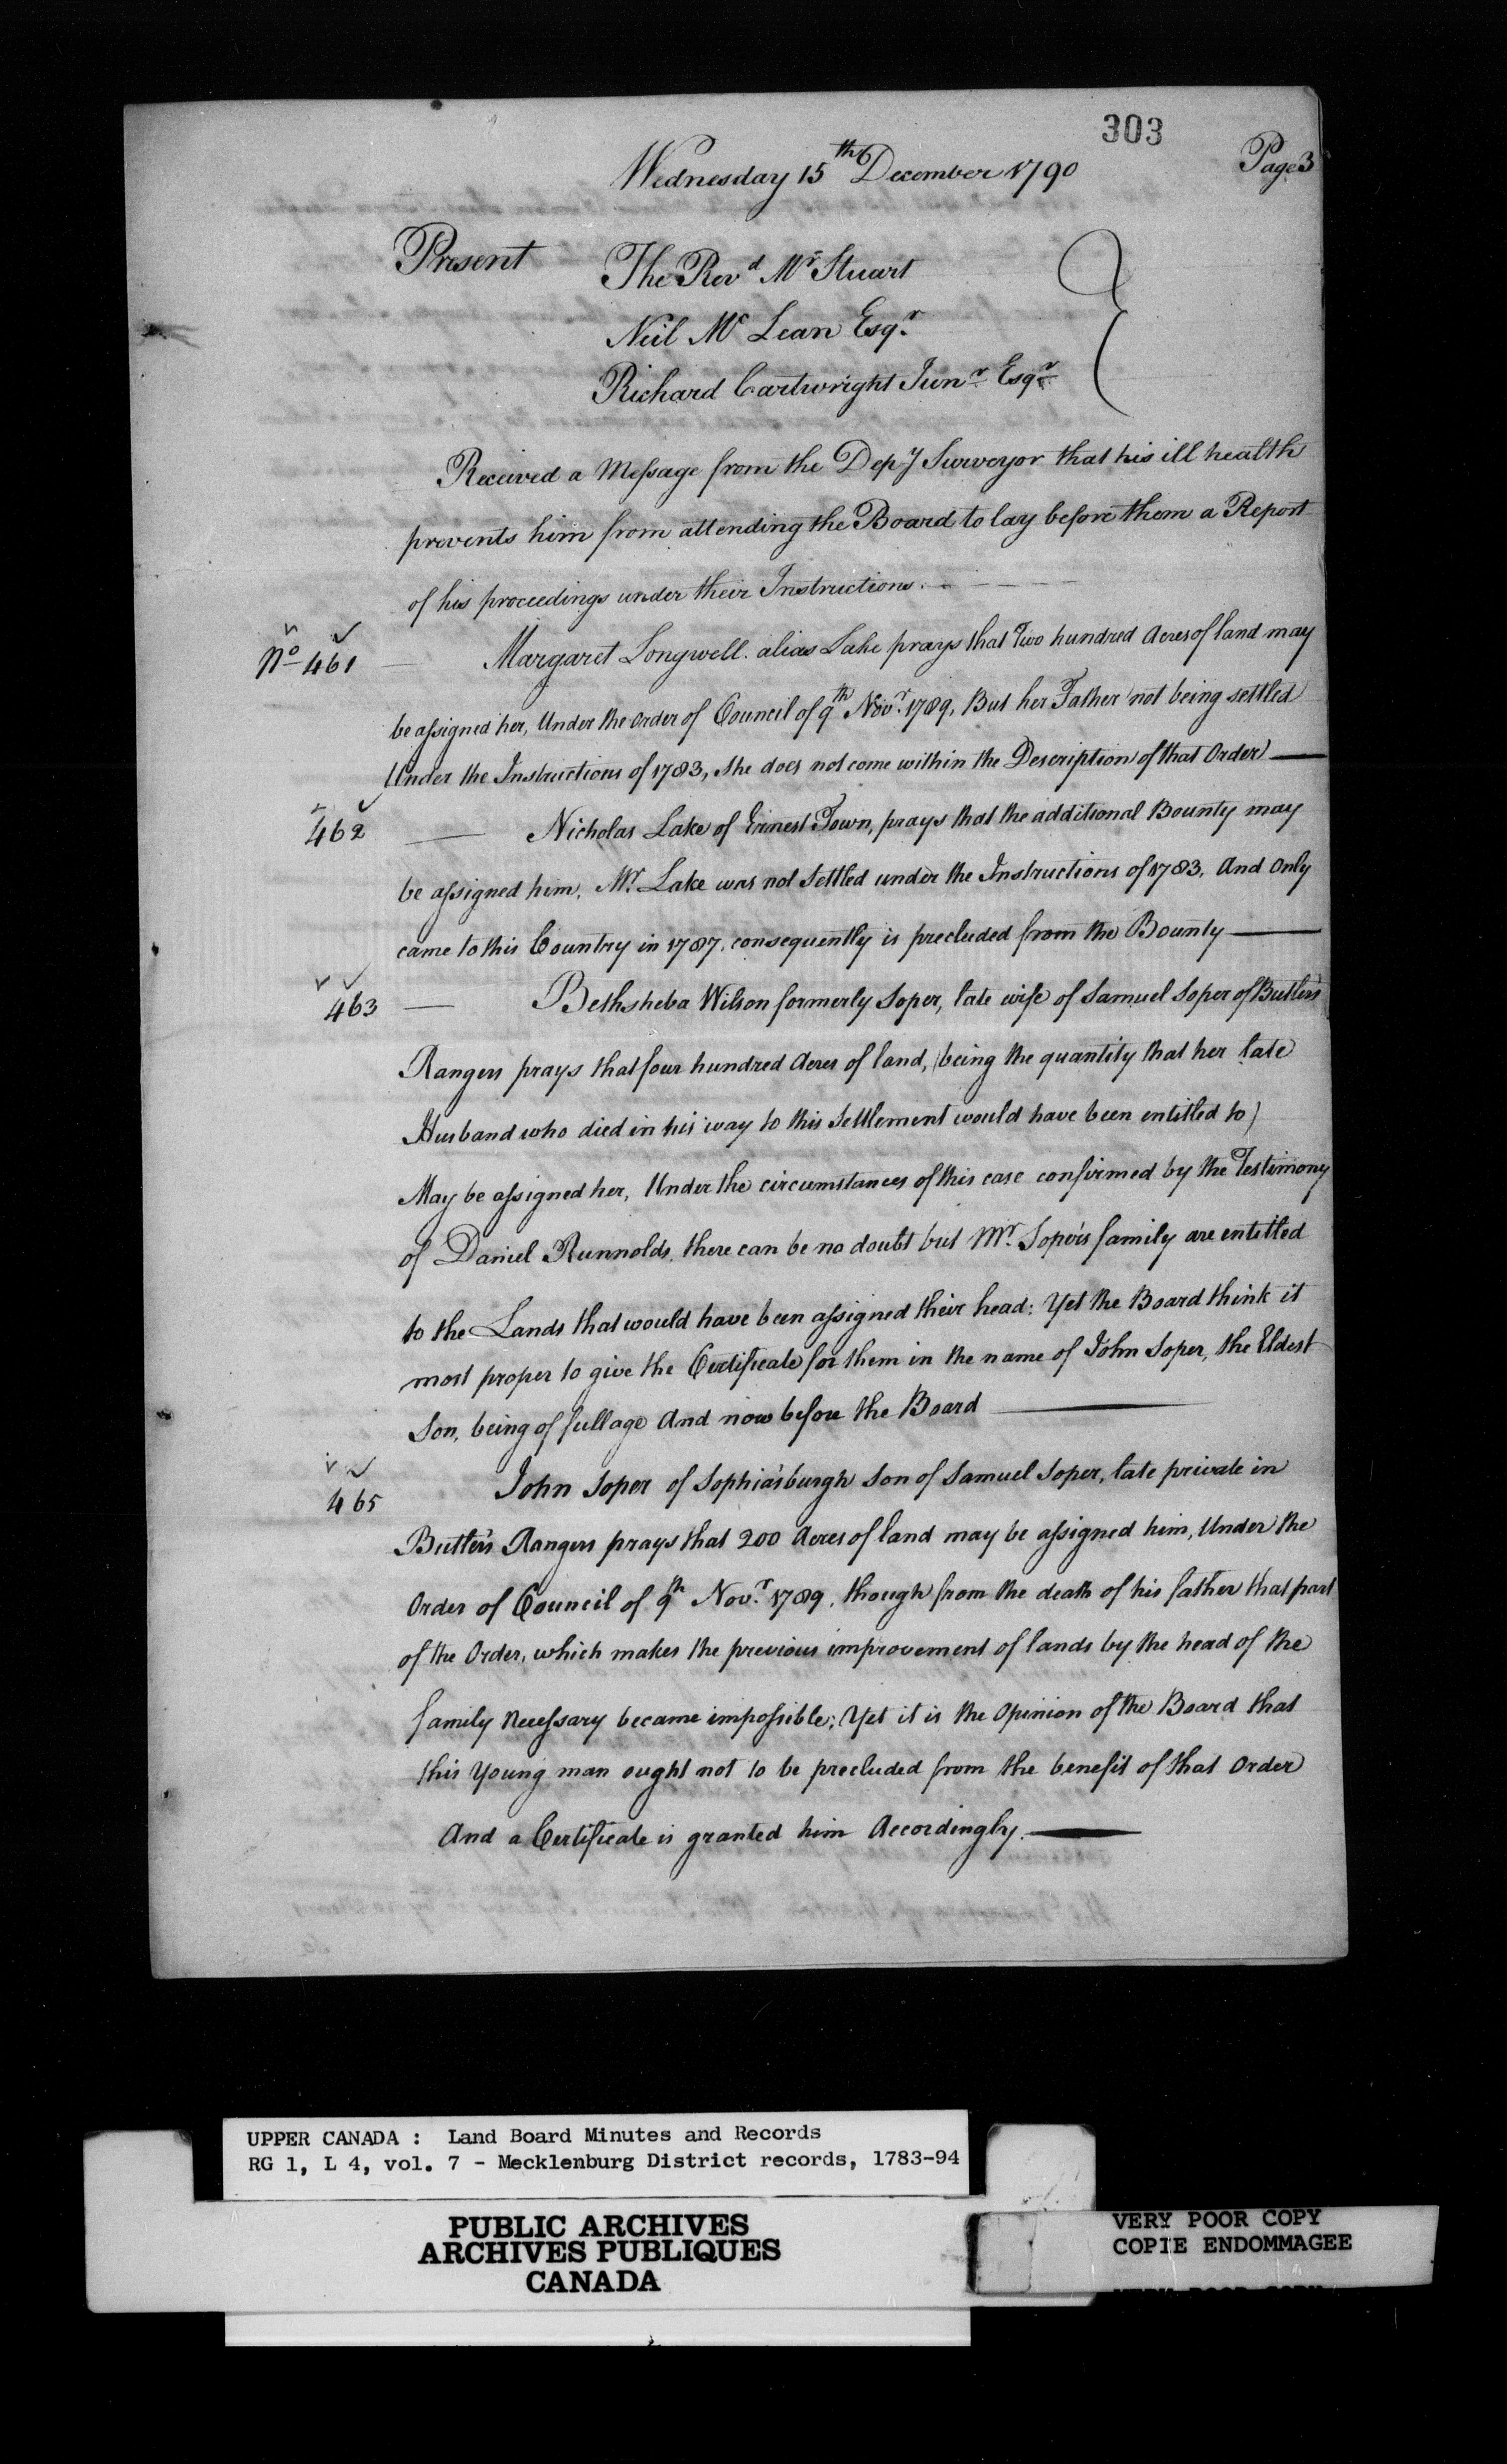 303
Wednesday 15th December 1790
Page 3
Present The Revd Mr Stuart
Neil Mc Lean Esqr
Richard Cartwright Junr Esqr
Received a Message from the Depy Surveyor that his ill health
prevents him from attending the Board to lay before them a Report
of his proceedings under their Instructions.
No 461 Margaret Longwell. alias Lake prays that Two hundred Acres of land may
be assigned her, Under the Order of Council of 9th Novr. 1789, But her Father not being settled
Under the Instructions of 1783, she does not come within the Description of that Order —
462 — Nicholas Lake of Ernest Town, prays that the additional Bounty may
be assigned him, Mr. Lake was not settled under the Instructions of 1783, And Only
came to this Country in 1787, consequently is precluded from the Bounty —
463 — Bethsheba Wilson formerly Soper, late wife of Samuel Soper of Butler's
Rangers prays that four hundred Acres of land, (being the quantity that her late
Husband who died in his way to this Settlement would have been entitled to)
May be assigned her, Under the circumstances of this case confirmed by the Testimony
of Daniel Runnolds, there can be no doubt but Mr. Soper's family are entitled
to the Lands that would have been assigned their head: Yet the Board think it
most proper to give the Certificate for them in the name of John Soper, the Eldest
Son, being of full age And now before the Board —
465 John Soper of Sophiasburgh Son of Samuel Soper, late private in
Butler's Rangers prays that 200 Acres of land may be assigned him, Under the
Order of Council of 9th Novr. 1789, though from the death of his father that part
of the Order, which makes the previous improvement of lands by the head of the
family Necessary became impossible; Yet it is the Opinion of the Board that
this Young man ought not to be precluded from the benefit of that Order
And a Certificate is granted him Accordingly. —
UPPER CANADA : Land Board Minutes and Records
RG 1, L 4, vol. 7 - Mecklenburg District records, 1783-94
PUBLIC ARCHIVES
ARCHIVES PUBLIQUES
CANADA
VERY POOR COPY
COPIE ENDOMMAGEE
VERY POOR COPY